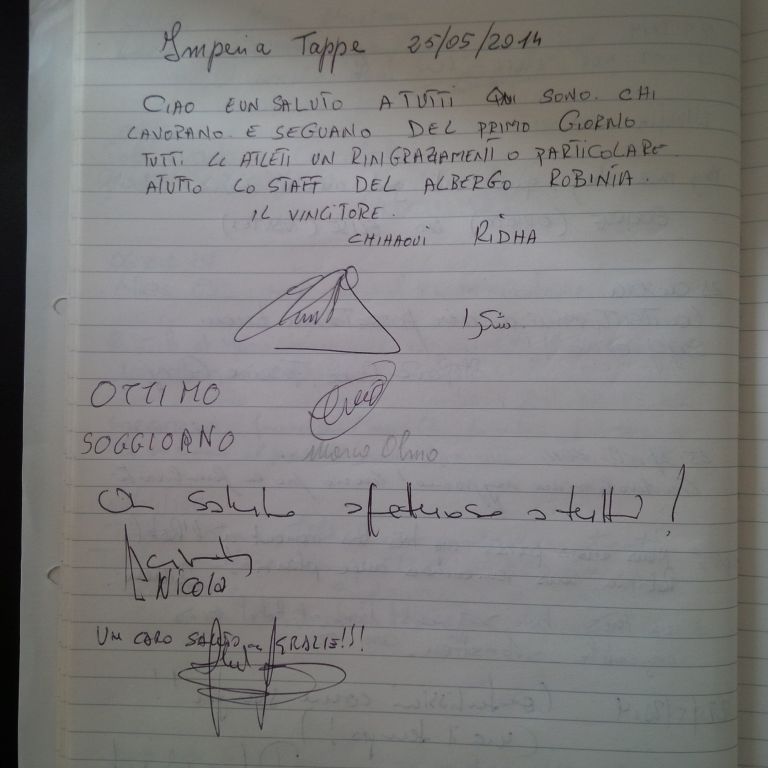 Imperia Tappe 25/05/2014
CIAO E UN SALUTO A TUTTI QUI SONO. CHI
LAVORANO E SEGUANO DEL PRIMO GIORNO
TUTTI LE ATLETI UN RINGRAZIAMENTI O PARTICOLARE
ATUTTO LO STAFF DEL ALBERGO ROBINIA.
IL VINCITORE.
CHIHAOUI RIDHA
شكرا
OTTIMO
SOGGIORNO
Marco Olmo
Un saluto afetuoso a tutti!
Nicola
UN CARO SALUTO GRAZIE!!!